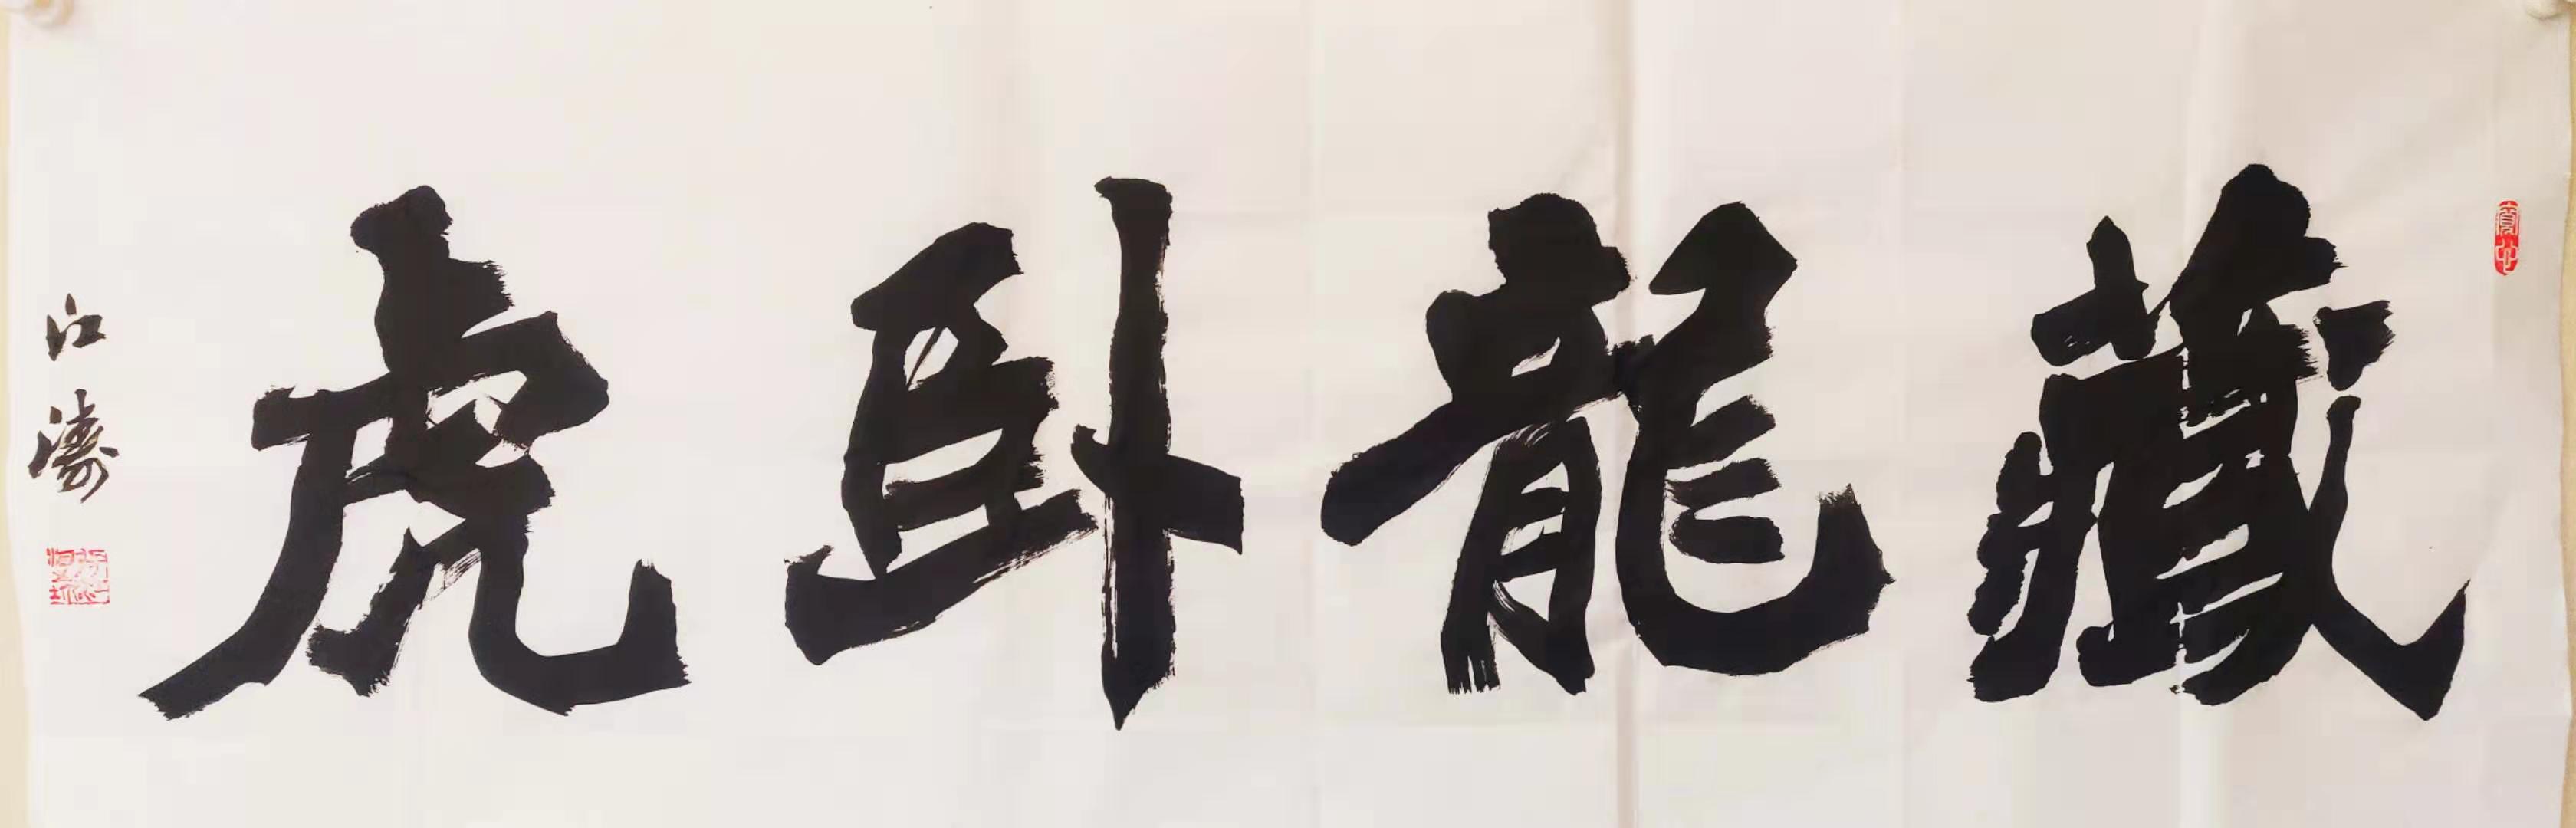 藏龍卧虎
江濤